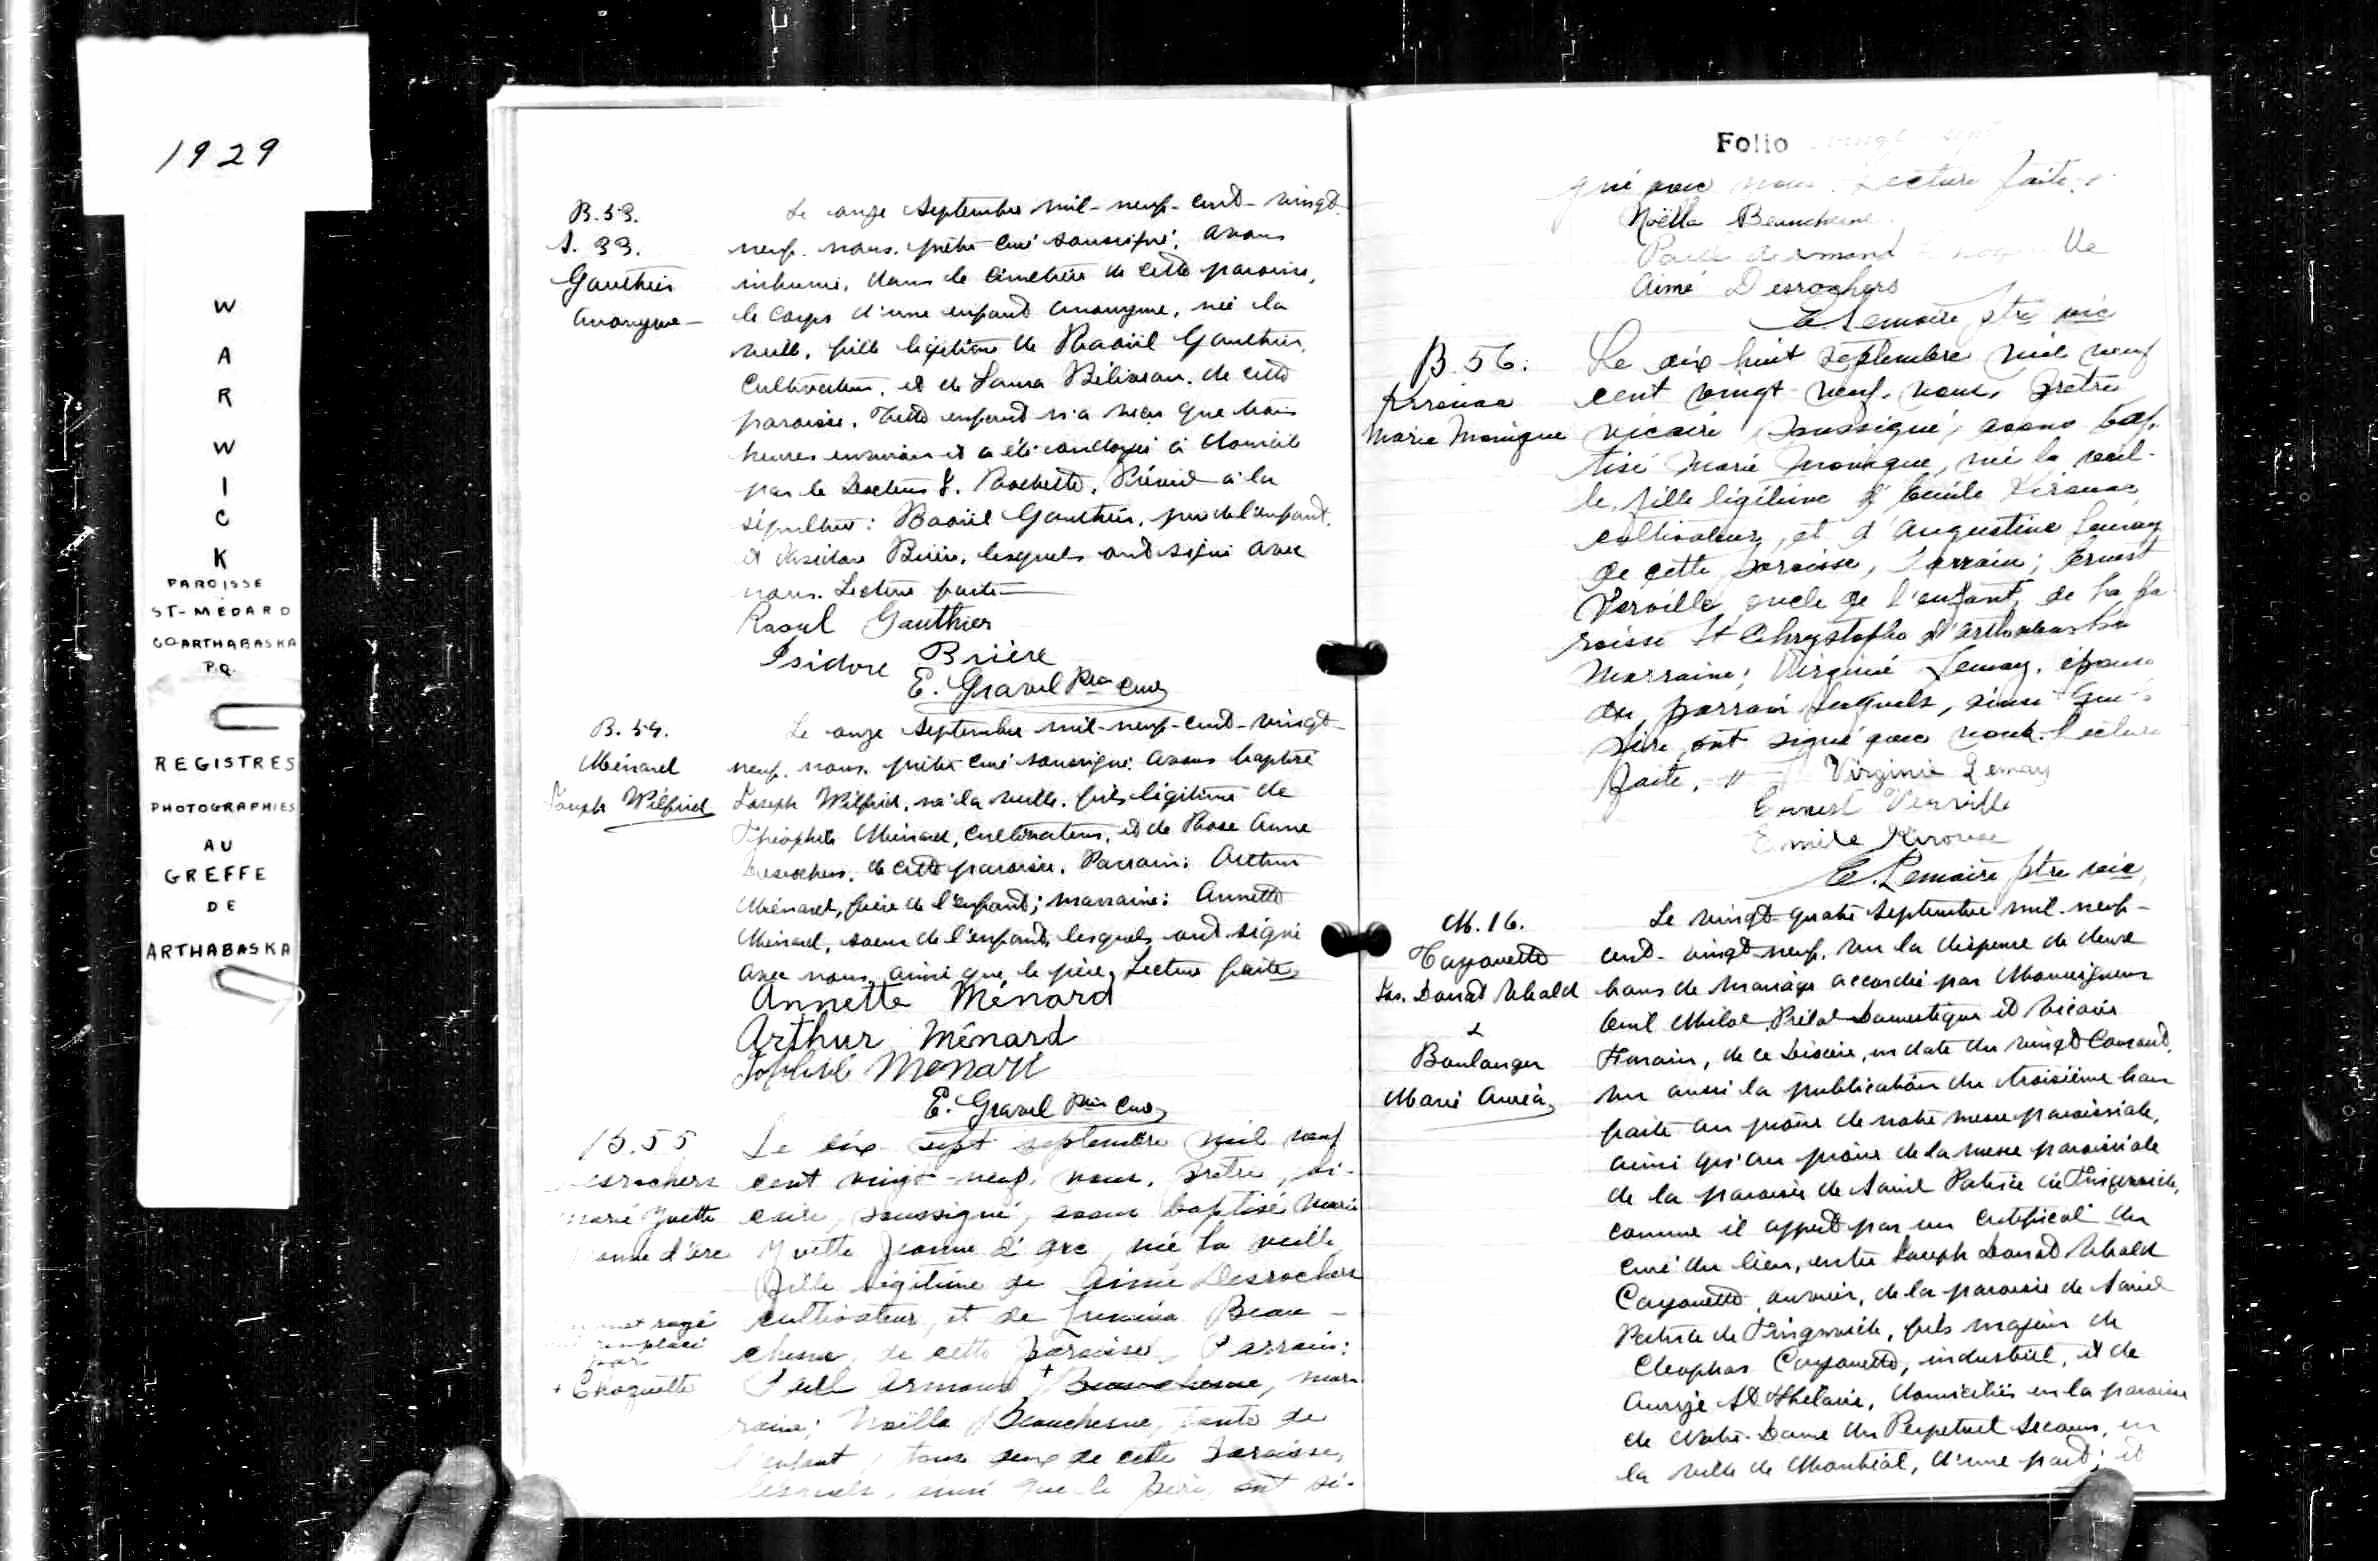 1929
W
A
R
W
I
C
K
PAROISSE
ST-MÉDARD
CO ARTHABASKA
P.Q.
REGISTRES
PHOTOGRAPHIES
AU
GREFFE
DE
ARTHABASKA
B. 53.
S. 33.
Gauthier
Anonyme
Le onze septembre mil-neuf-cent-vingt
neuf, nous, prêtre curé soussigné, avons
inhumé, dans le cimetière de cette paroisse,
le corps d'une enfant anonyme, née la
veille, fille légitime de Raoul Gauthier,
cultivateur, et de Laura Béliveau, de cette
paroisse. Cette enfant n'a vécu que trois
heures environ et a été ondoyée à domicile
par le Docteur J. Rochette. Présent à la
sépulture: Raoul Gauthier, père de l'enfant,
et Isidore Brière, lesquels ont signé avec
nous. Lecture faite
Raoul Gauthier
Isidore Brière
E. Gravel Ptre Curé
B. 54.
Ménard
Joseph Wilfrid
Le onze septembre mil-neuf-cent-vingt
neuf, nous, prêtre curé soussigné, avons baptisé
Joseph Wilfrid, né la veille, fils légitime de
Théophile Ménard, cultivateur, et de Rose Anne
Desrochers, de cette paroisse. Parrain: Arthur
Ménard, frère de l'enfant; marraine: Annette
Ménard, soeur de l'enfant, lesquels ont signé
avec nous, ainsi que le père, Lecture faite
Annette Ménard
Arthur Ménard
Menard
E. Gravel Ptre Curé
B. 55
esrochers
Marie Yvette
anne d'arc
rayé
remplacé
par
+ Choquette
Le dix sept septembre mil neuf
cent vingt-neuf, nous, prêtre, vi-
caire, soussigné, avons baptisé Marie
Yvette Jeanne d'arc, née la veille
fille légitime de Aimé Desrochers
cultivateur, et de Beau-
chesne, de cette paroisse, Parrain:
Paul Armand + Beauchesne, mar-
raine; Noëlla Beauchesne, tante de
l'enfant, tous deux de cette paroisse,
lesquels, ainsi que le père, ont si-
Folio vingt sept
gné avec nous. Lecture faite.
Noëlla Beauchesne
Paul Armand
Aimé Desrochers
E. Lemaire ptre vic
B. 56.
Kirouac
Marie Monique
Le dix huit septembre mil neuf
cent vingt-neuf, nous, prêtre
vicaire, soussigné, avons bap-
tisé Marie Monique, née la veil-
le, fille légitime d'Emile Kirouac
cultivateur, et d'Augustine Lemay
de cette paroisse, Parrain; Ernest
Verville, oncle de l'enfant, de la pa-
roisse St Chrystophe d'Arthabaska
Marraine; Virginie Lemay, épouse
du parrain lesquels, ainsi que le
père, ont signé avec nous. Lecture
faite. Virginie Lemay
Ernest Verville
Emile Kirouac
E. Lemaire ptre vic
M. 16.
Cayouette
Jos. Donat Ubald
&
Boulanger
Marie Auréa
Le vingt-quatre septembre mil-neuf-
cent-vingt-neuf, vu la dispense de deux
bans de mariage accordée par Monseigneur
Milot, Prélat Domestique et Vicaire
Forain, de ce Diocèse, en date du vingt courant,
vu aussi la publication du troisième ban
faite au prône de notre messe paroissiale,
ainsi qu'au prône de la messe paroissiale
de la paroisse de Saint Patrice de Tingwick,
comme il appert par un certificat du
curé du lieu, entre Joseph Donat Ubald
Cayouette, ouvrier, de la paroisse de Saint
Patrice de Tingwick, fils majeur de
Cléophas Cayouette, industriel, et de
St Hilaire, domiciliés en la paroisse
de Notre-Dame du Perpétuel Secours, en
la ville de Montréal, d'une part; et